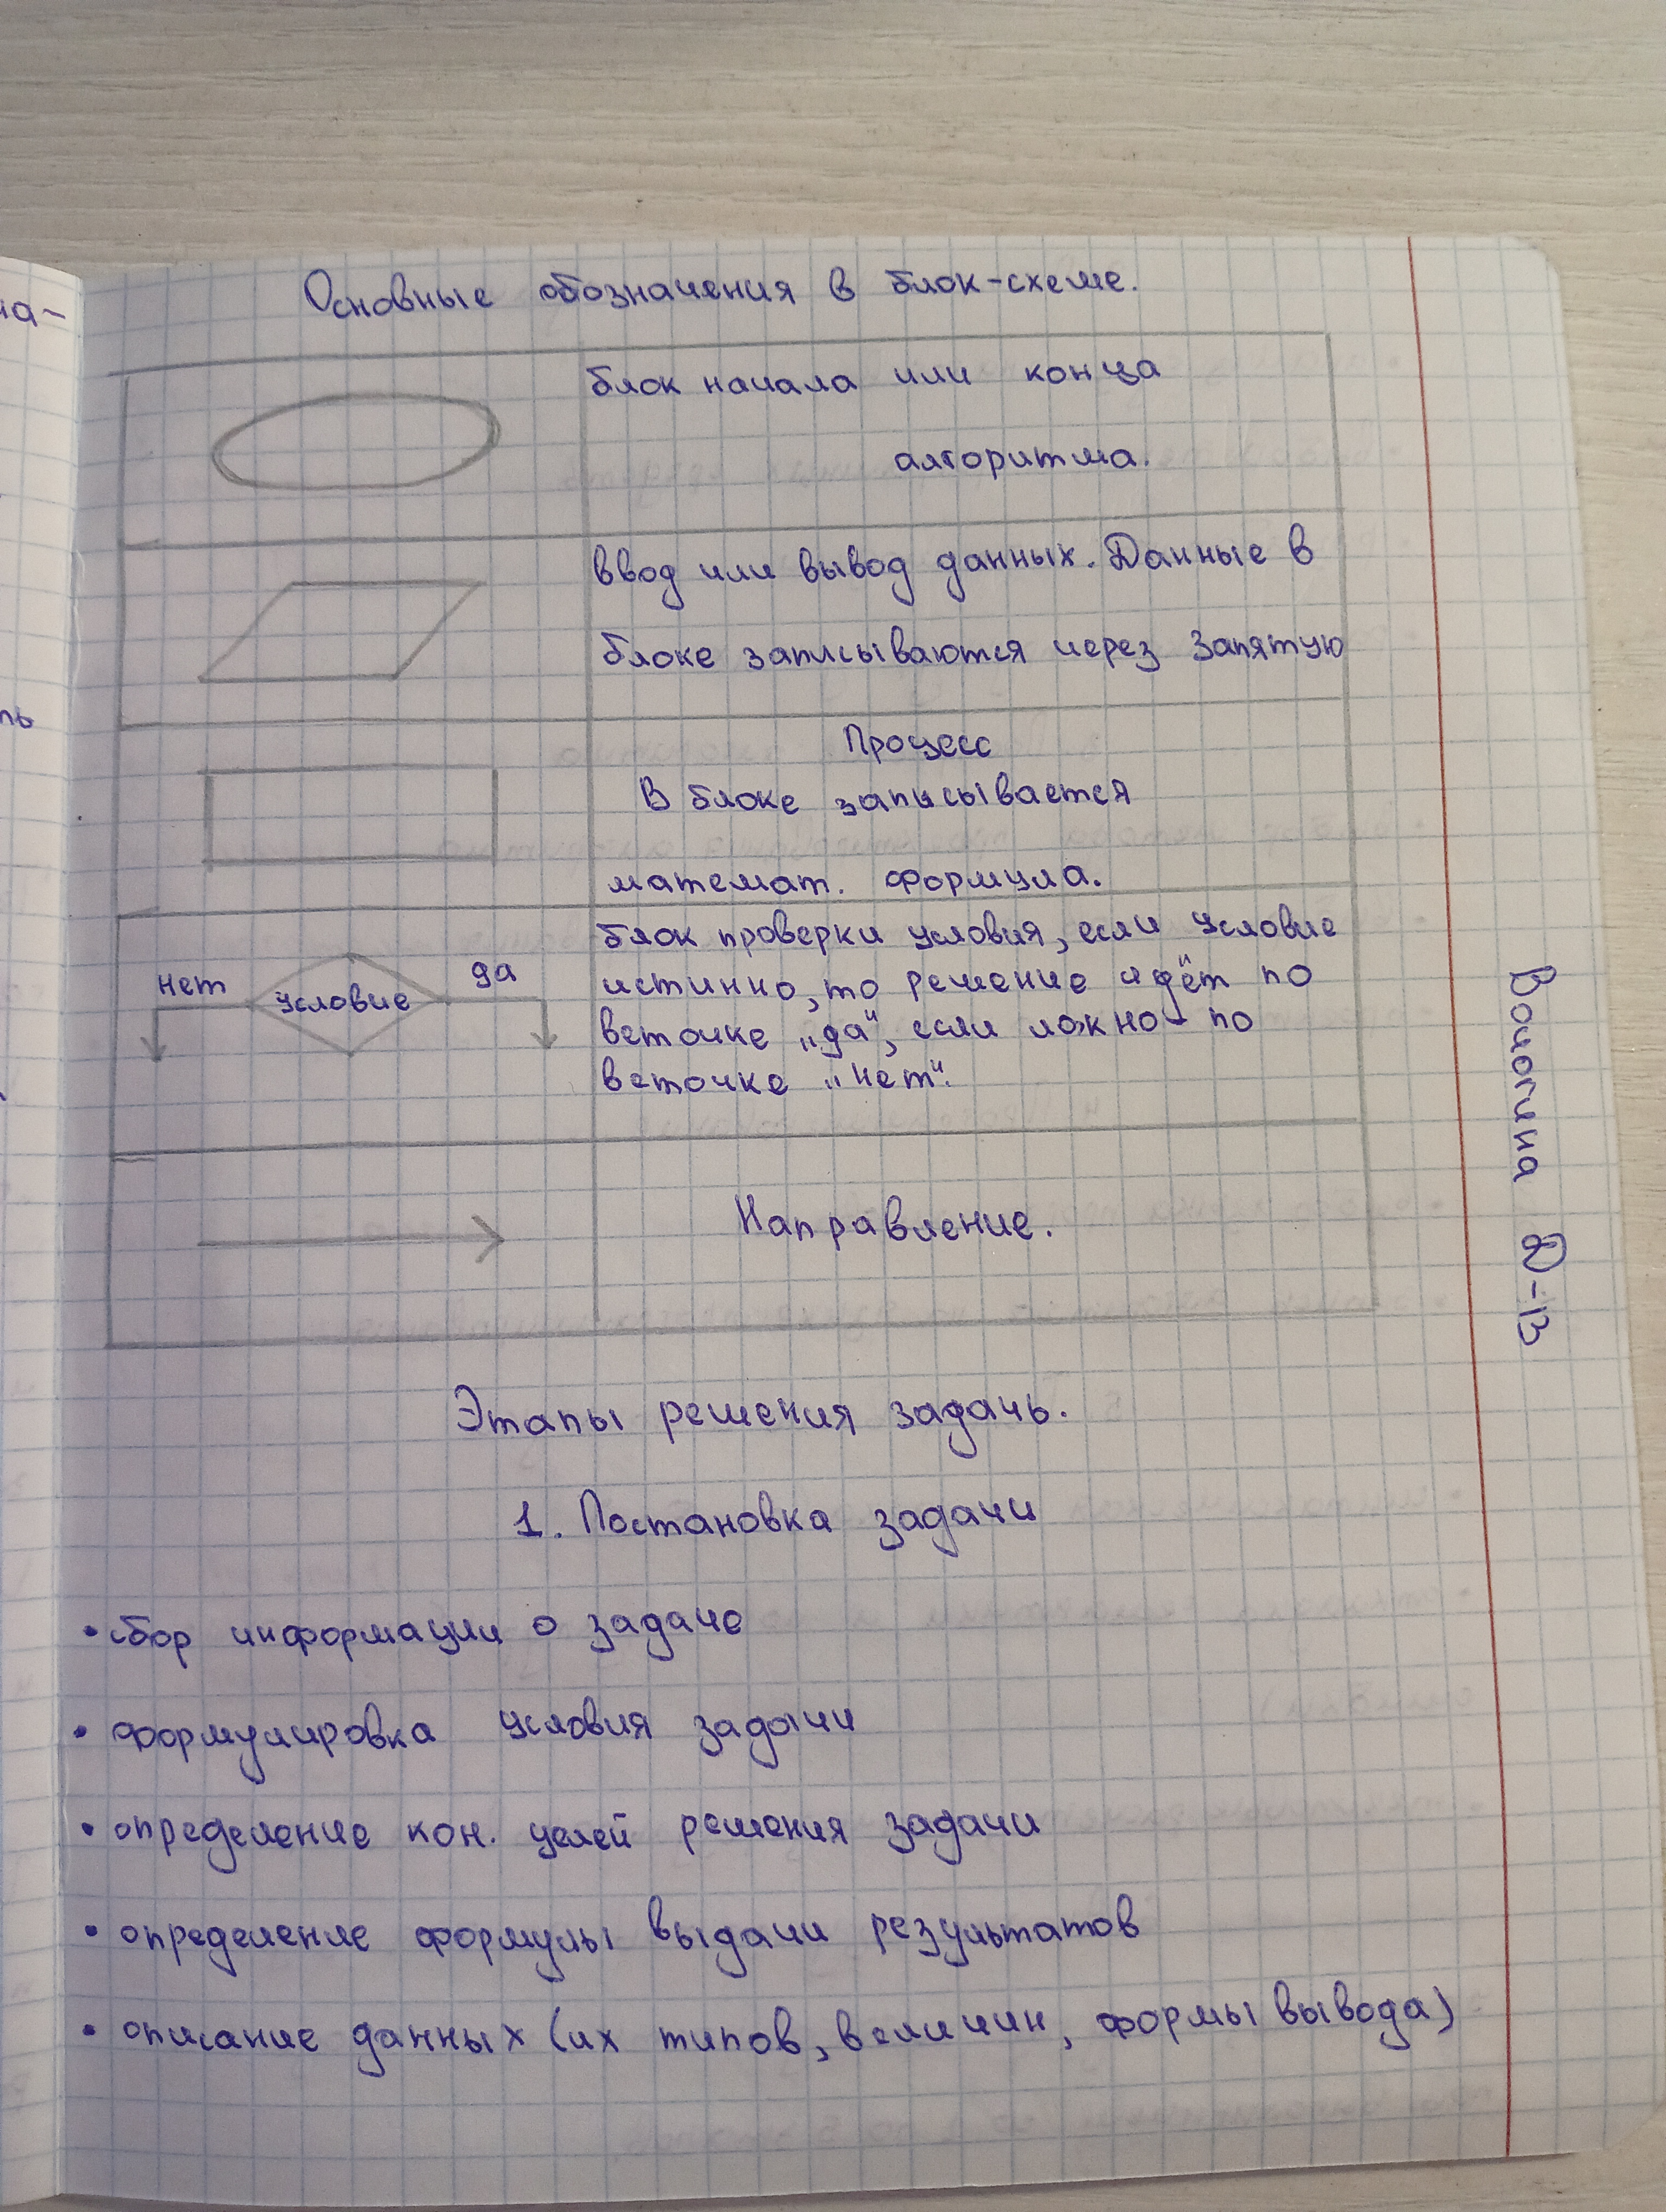 Основные обозначения в блок-схеме.
блок начала или конца
алгоритма.
ввод или вывод данных. Данные в
блоке записываются через запятую
Процесс
В блоке записывается
математ. формула.
нет
условие
да
блок проверки условия, если условие
истинно, то решение идёт по
веточке „да“, если ложно - по
веточке „нет“.
Направление.
Этапы решения задачь.
1. Постановка задачи
• сбор информации о задаче
• формулировка условия задачи
• определение кон. целей решения задачи
• определение формулы выдачи результатов
• описание данных (их типов, величин, формы вывода)